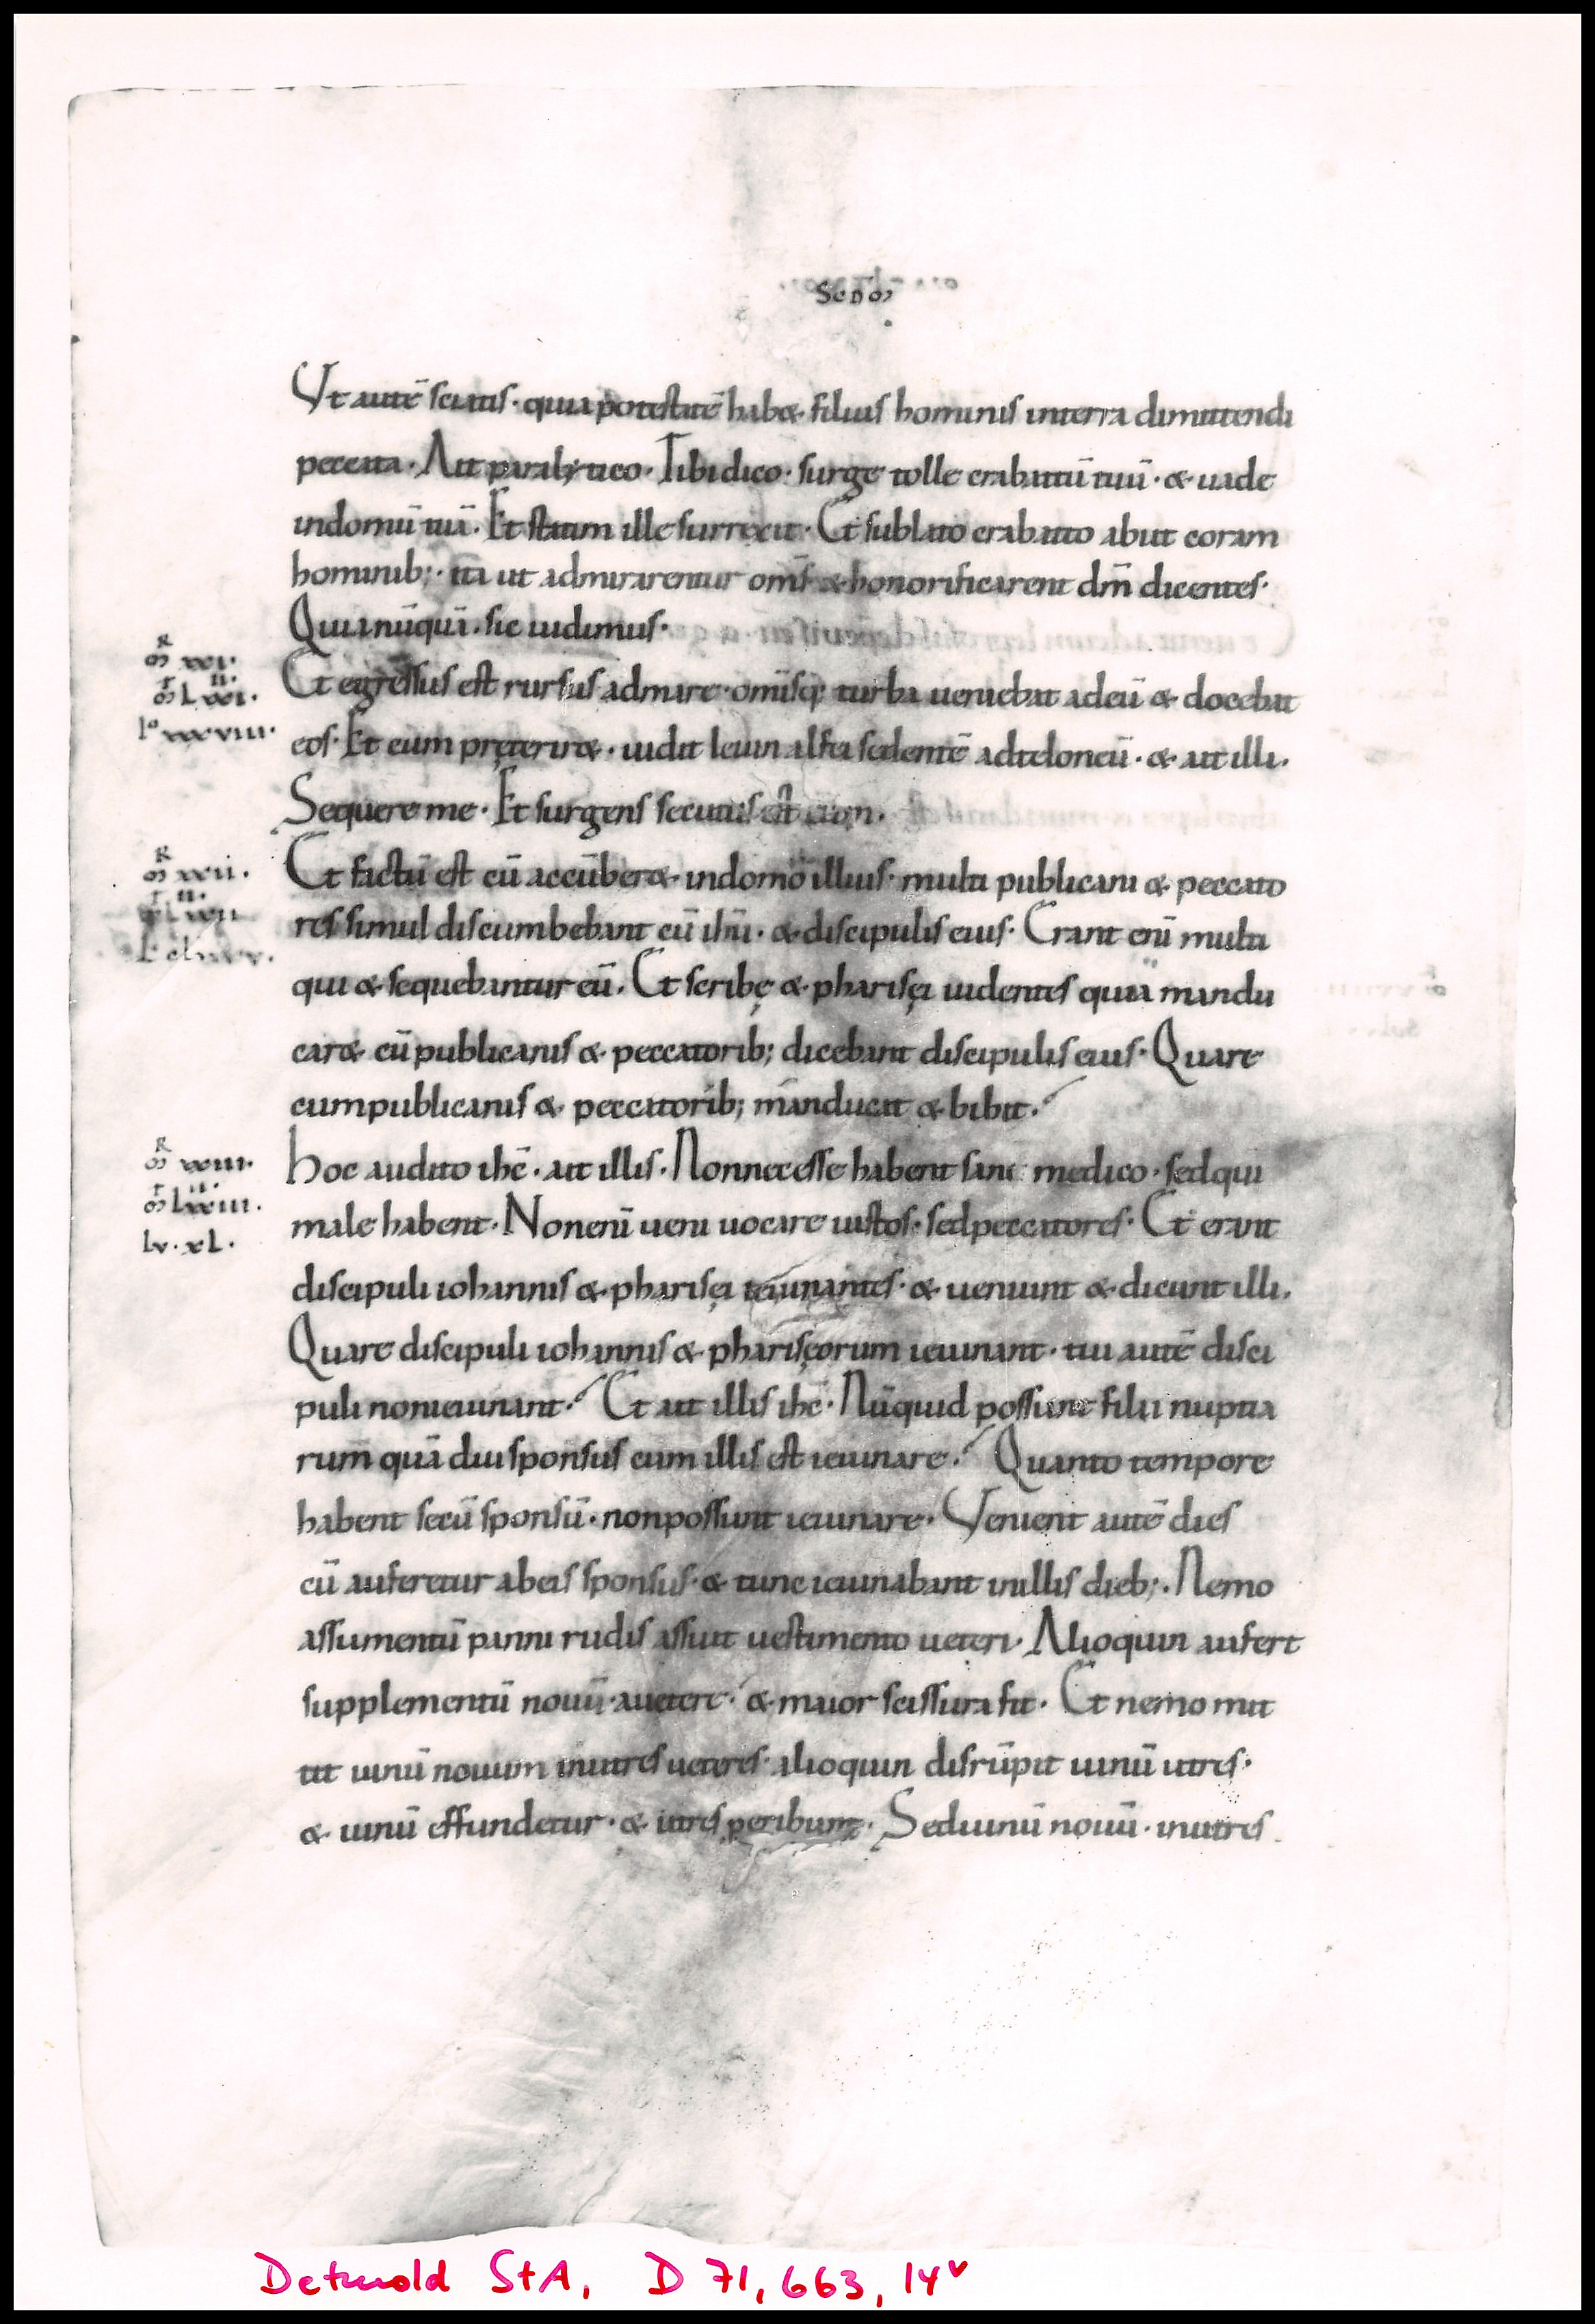 Scdm
Vt autē sciatis · quia potestatē hab& filius hominis interra dimittendi
peccata · Ait paralytico · Tibi dico · surge tolle crabattū tuū · & uade
indomū tuā · Et statim ille surrexit · Et sublato crabatto abiit coram
hominib; · ita ut admirarentur om̄s & honorificarent dm̄ dicentes ·
Quia nūquā · sic uidimus ·
Et egressus est rursus admare · omisq; turba ueniebat adeū & docebat
eos · Et cum pręterir& · uidit leuin alfei sedentē adteloneū · & ait illi ·
Sequere me · Et surgens secutus est eum ·
Et factū est cū accūber& · indomo illius · multi publicani & peccato
res simul discumbebant cū ihū · & discipulis eius · Erant enī multi
qui & sequebantur eū · Et scribę & pharisęi uidentes quia mandu
car& cū publicanis & peccatorib; dicebant discipulis eius · Quare
cumpublicanis & peccatorib; manducat & bibit ·
R
m xxi ·
II ·
m Lxxi ·
l° xxxviii ·
R
m xxii ·
II ·
R
m xxiii ·
II ·
m Lxxiii ·
lv · xL ·
hoc audito ihc̄ · ait illis · Nonnecesse habent sani medico · sedqui
male habent · Nonenī ueni uocare iustos · sedpeccatores · Et erant
discipuli iohannis & pharisęi ieiunantes · & ueniunt & dicunt illi ·
Quare discipuli iohannis & pharisęorum ieiunant · tui autē disci
puli nonieiunant · Et ait illis ihc̄ · Nūquid possunt filii nuptia
rum quā diu sponsus cum illis est ieiunare · Quanto tempore
habent secū sponsū · nonpossunt ieiunare · Venient autē dies
cū auferetur abeis sponsus · & tunc ieiunabant inillis dieb; · Nemo
assumentū panni rudis assuit uestimento ueteri · Alioquin aufert
supplementū nouū · auetere · & maior scissura fit · Et nemo mit
tit uinū nouum inutres ueteres · alioquin disrūpit uinū utres ·
& uinū effundetur · & utres peribunt · Seduinū nouū · inutres
Detmold StA, D 71, 663, 14v